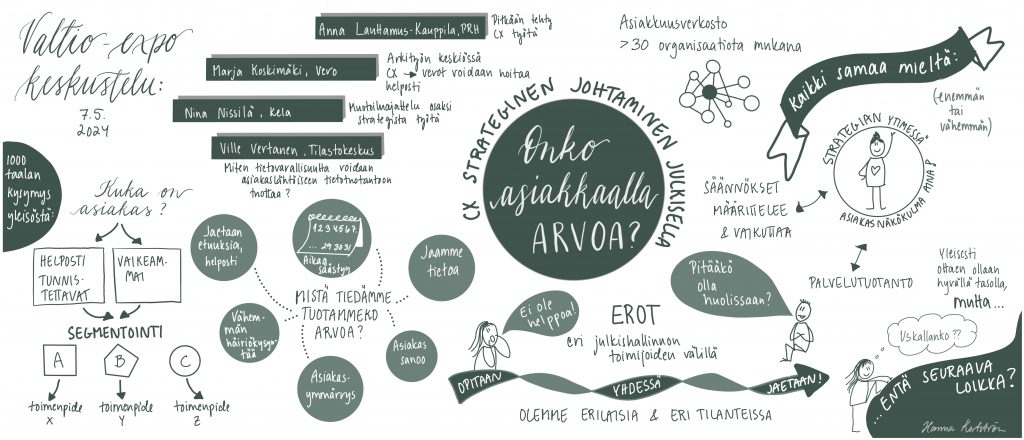 Valtio-expo
keskustelu:
7.5.
2024
Anna Lauttamus-Kauppila, PRH
Pitkään tehty
CX työtä
Marja Koskimäki, Vero
Arkityön keskiössä
CX → verot voidaan hoitaa
helposti
Nina Nissilä, Kela
Muotoiluajattelu osaksi
strategista työtä
Ville Vertanen, Tilastokeskus
Miten tietovarallisuutta voidaan
asiakaslähtöiseen tietotuotantoon
tuottaa?
1000
taalan
kysymys
yleisöstä:
Kuka on
asiakas?
HELPOSTI
TUNNIS-
TETTAVAT
VAIKEAM-
MAT
SEGMENTOINTI
A
B
C
toimenpide
X
toimenpide
Y
toimenpide
Z
Jaetaan
etuuksia,
helposti
1 2 3 4 5 6 7.
... 29 30 31
Aikaa
säästyy
Jaamme
tietoa
MISTÄ TIEDÄMME
TUOTAMMEKO
ARVOA?
Vähem-
män
häiriökysyn-
tää
Asiakas
sanoo
Asiakas-
ymmärrys
CX STRATEGINEN JOHTAMINEN JULKISELLA
Onko
asiakkaalla
ARVOA?
Asiakkuusverkosto
>30 organisaatiota mukana
Kaikki samaa mieltä:
(enemmän
tai
vähemmän)
STRATEGIAN YTIMESSÄ
ASIAKASNÄKÖKULMA AINA
SÄÄNNÖKSET
MÄÄRITTELEE
& VAIKUTTAA
PALVELUTUOTANTO
Ei ole
helppoa!
EROT
eri julkishallinnon
toimijoiden välillä
Pitääkö
olla
huolissaan?
OPITAAN
YHDESSÄ
JAETAAN!
OLEMME ERILAISIA & ERI TILANTEISSA
Yleisesti
ottaen ollaan
hyvällä tasolla,
mutta...
Uskallanko??
...ENTÄ SEURAAVA
LOIKKA?
Hanna